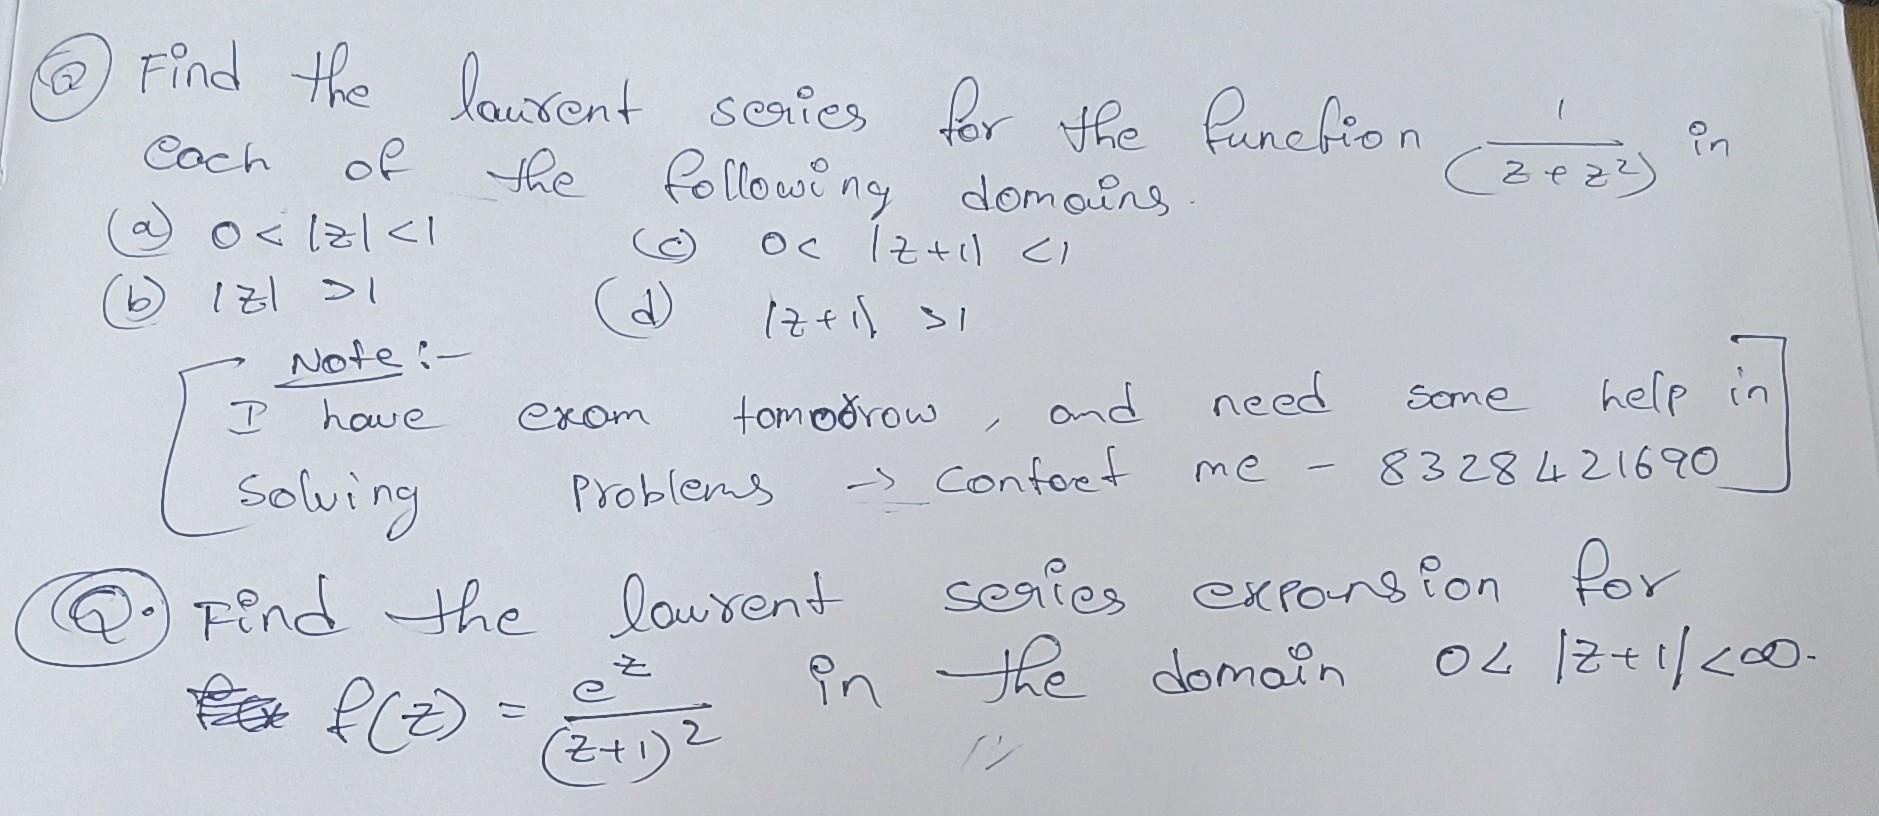 Q Find the laurent series for the function 1/(z+z²) in
each of the following domains.
(a) 0 < |z| < 1 (c) 0 < |z+1| < 1
(b) |z| > 1 (d) |z+1| > 1
Note :-
I have exam tomorrow, and need some help in
solving problems -> contact me - 8328421690
Q. Find the laurent series expansion for
f(z) = e^z/(z+1)² in the domain 0 < |z+1| < ∞.